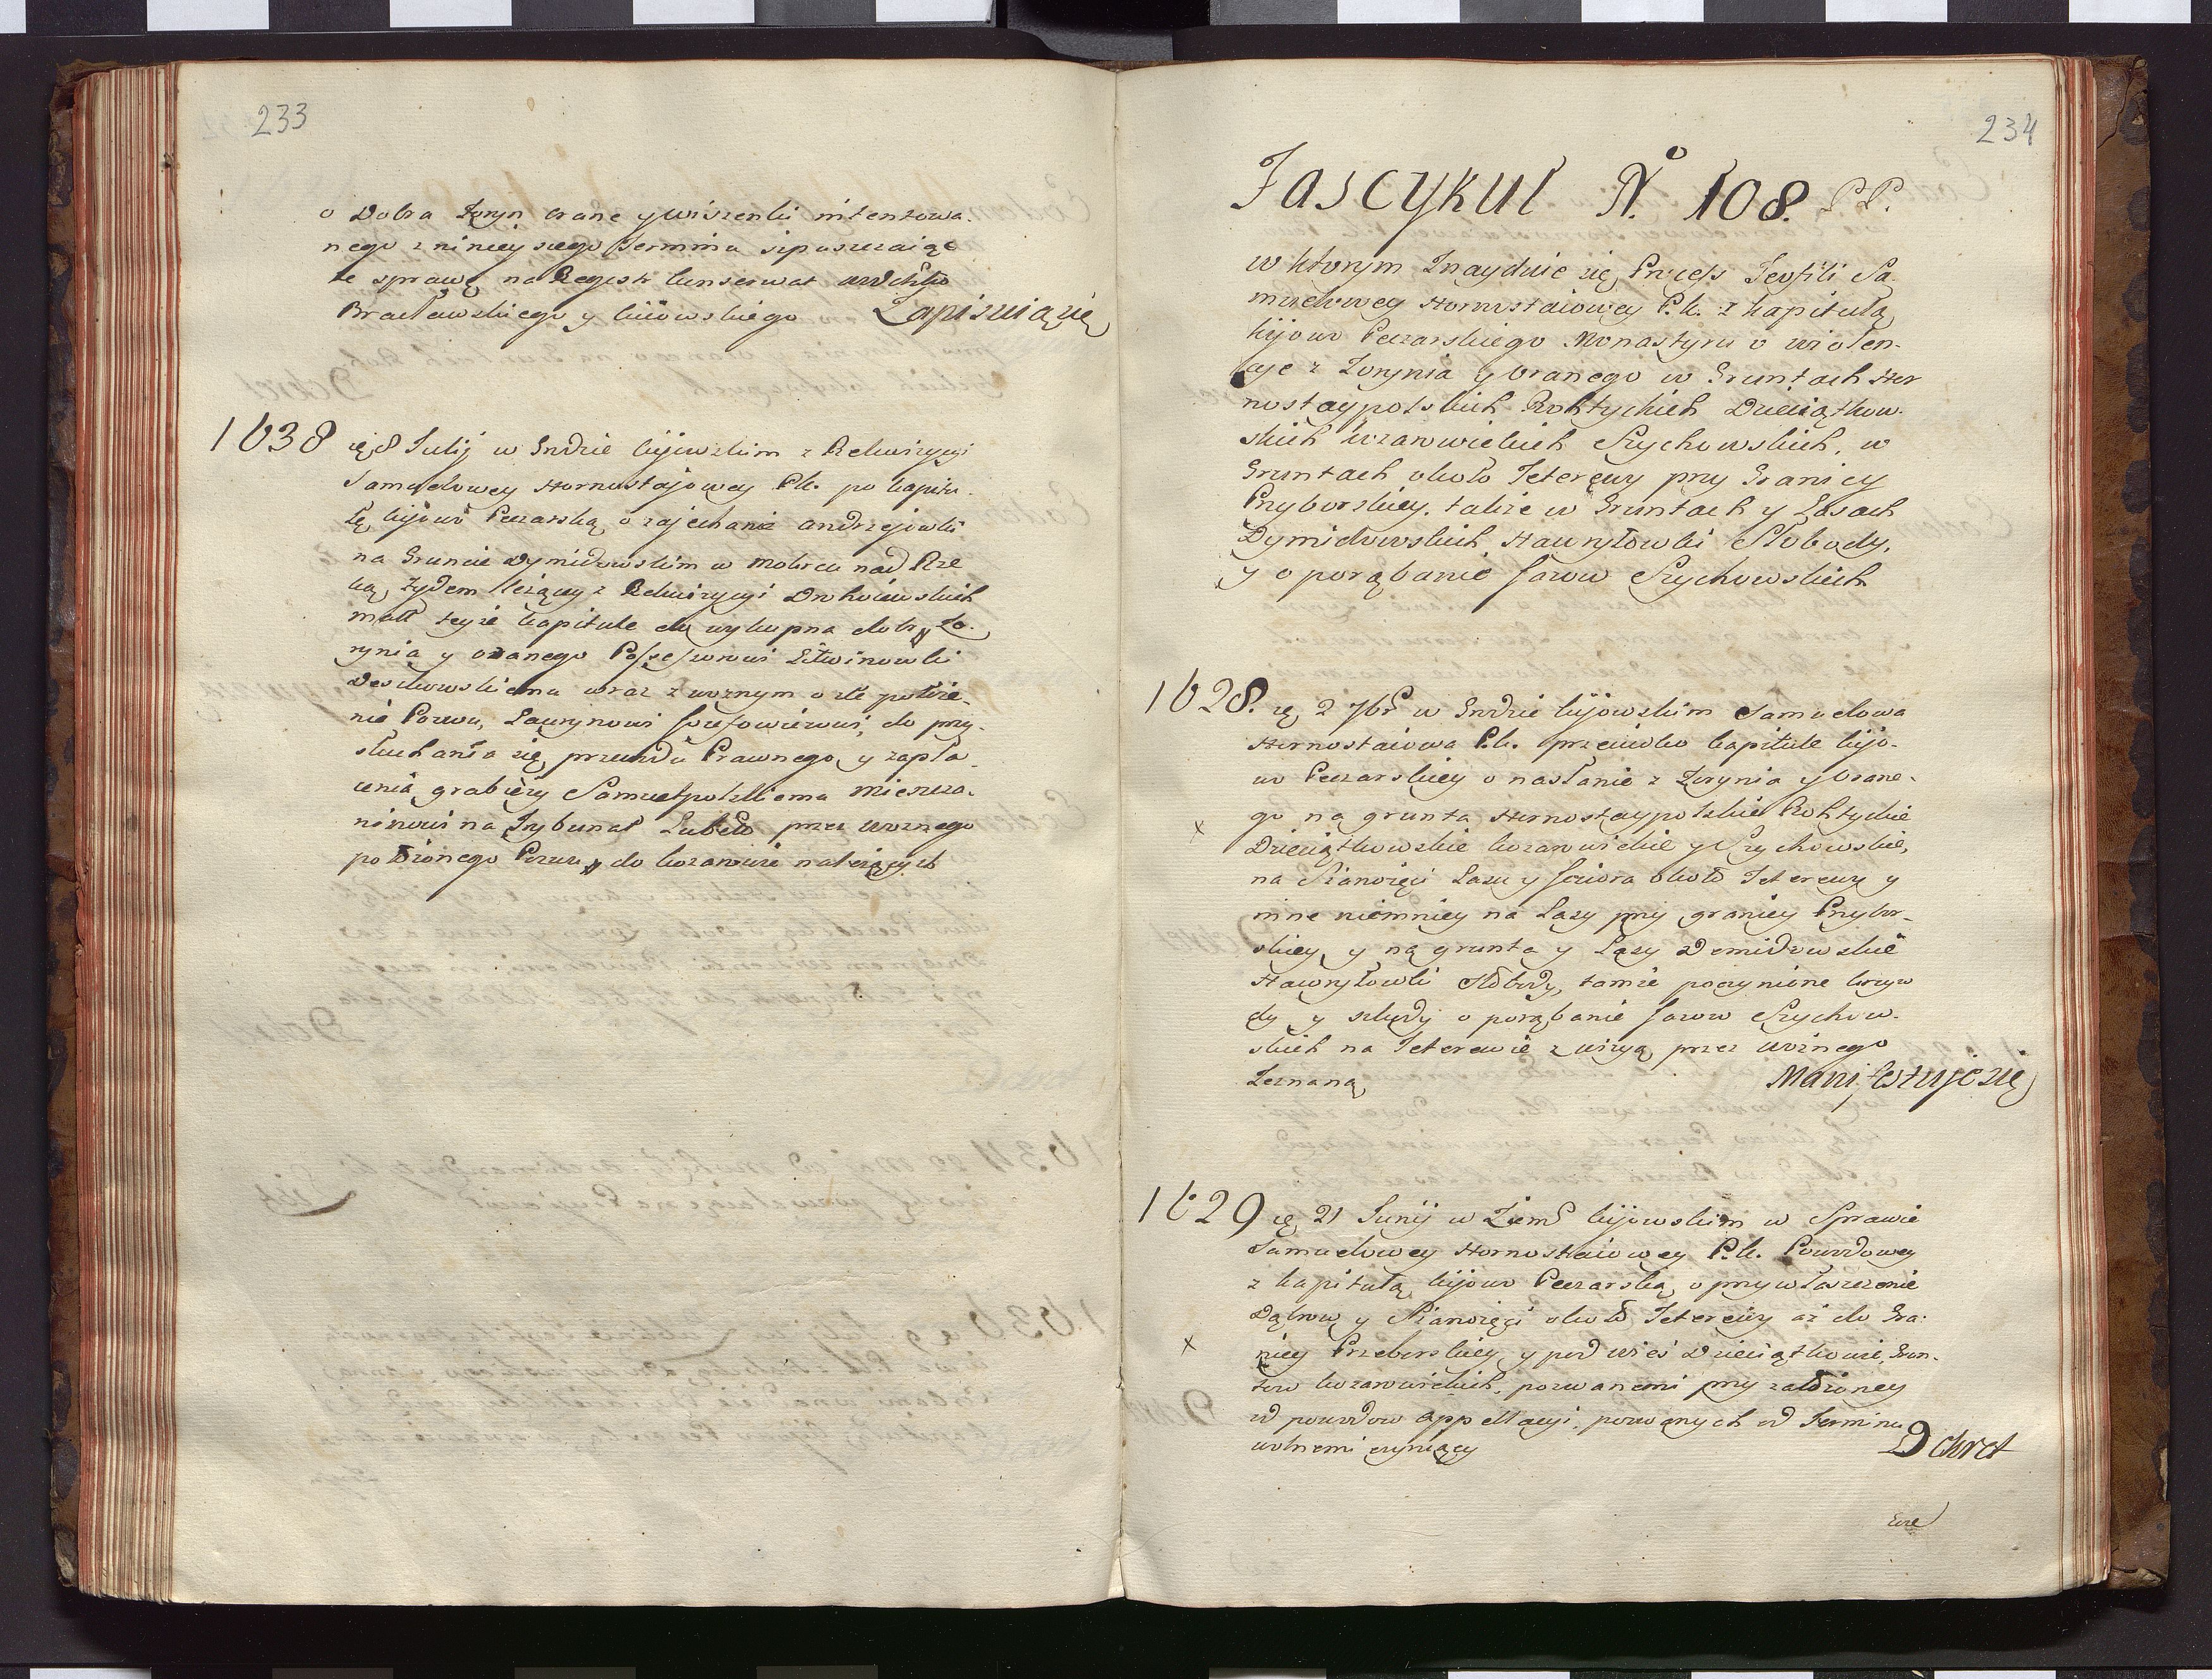 233
o Dobra Zoryn Orane y wiszenki intentowa-
nego z ninieyszego Terminu spuszczaiąc
te sprawę na Regestr Conserwat
Bracławskiego y kiiowskiego Zapisuiąsię
1638 rę 8 Julij w Grodzie kijowskim z Rekwizycyi
Samuelowey Hornostajowey Pk. po kapitu-
łę kijowo Peczarską o zajechanie Andrzejowki
na Gruncie Dymidowskim w Mokrcu nad Rze
ką Zydem leżącey z Rekwizycyi Drohoiewskich
małż teyże kapitule do wykupna dobr Zo-
rynia y oranego Possessorowi Litwinowki
wraz z woznym o złe położe-
nie Pozwu, Ławrynowi do przy-
słuchania się przewodu Prawnego y zapła-
cenia grabieży Samuelpolskiemu miescza-
ninowi na Trybunał Lubel przez woznego
położonego Pozwu do kozarowicz należących
234
Fascykuł N.o 108. PP.
w ktorym Znayduie się Process Teofili Sa-
muelowey Hornostaiowey P.k. z kapitułą
kijowo Peczarskiego Monastyru o wiolen-
cye z Zorynia y oranego w Gruntach Hor
nostaypolskich Rohtyckich Dzieciątkow-
skich kozarowickich Szychowskich, w
Gruntach około Teterewy przy Granicy
Przyborskiey, takze w Gruntach y Lasach
Dymidowskich Hawryłowki Słobody,
y o porąbanie Jazow Szychowskich
1628. rę 2 7br w Grodzie kijowskim Samuelowa
Hornostaiowa P.k. przeciwko kapitule kijo-
wo Peczarskiey o nasłanie z Zorynia y orane-
go na grunta Hornostaypolskie Rohtyckie
x
Dzieciątkowskie kozarowickie y Szychowskie,
na Sianożęci Lasu y Jeziora około Teterewy y
inne niemniey na Lasy przy graniey Przybor-
skiey, y na grunta y Lasy Demidowskie
Hawryłowki Słobody, tamże poczynione krzyw
dy y szkody o porąbanie Jazow Szychow-
skich na Teterewie z wizyą przez woznego
Zeznaną Manifestuje się
1629 rę 21 Junij w Ziems kijowskim w Sprawie
Samuelowey Hornostaiowey P.k. Powodowey
z kapitułą kijowo Peczarską o przywłaszczenie
Dąbrow y Sianożęci około Teterewy aż do Gra-
x
nicy Przeborskiey y pod wieś Dzieciątkowie, Grun-
tow kozarowickich, pozwanemi przy założoney
od powodow appellacyi, pozwanych od Terminu
wolnemi czyniący Dekret